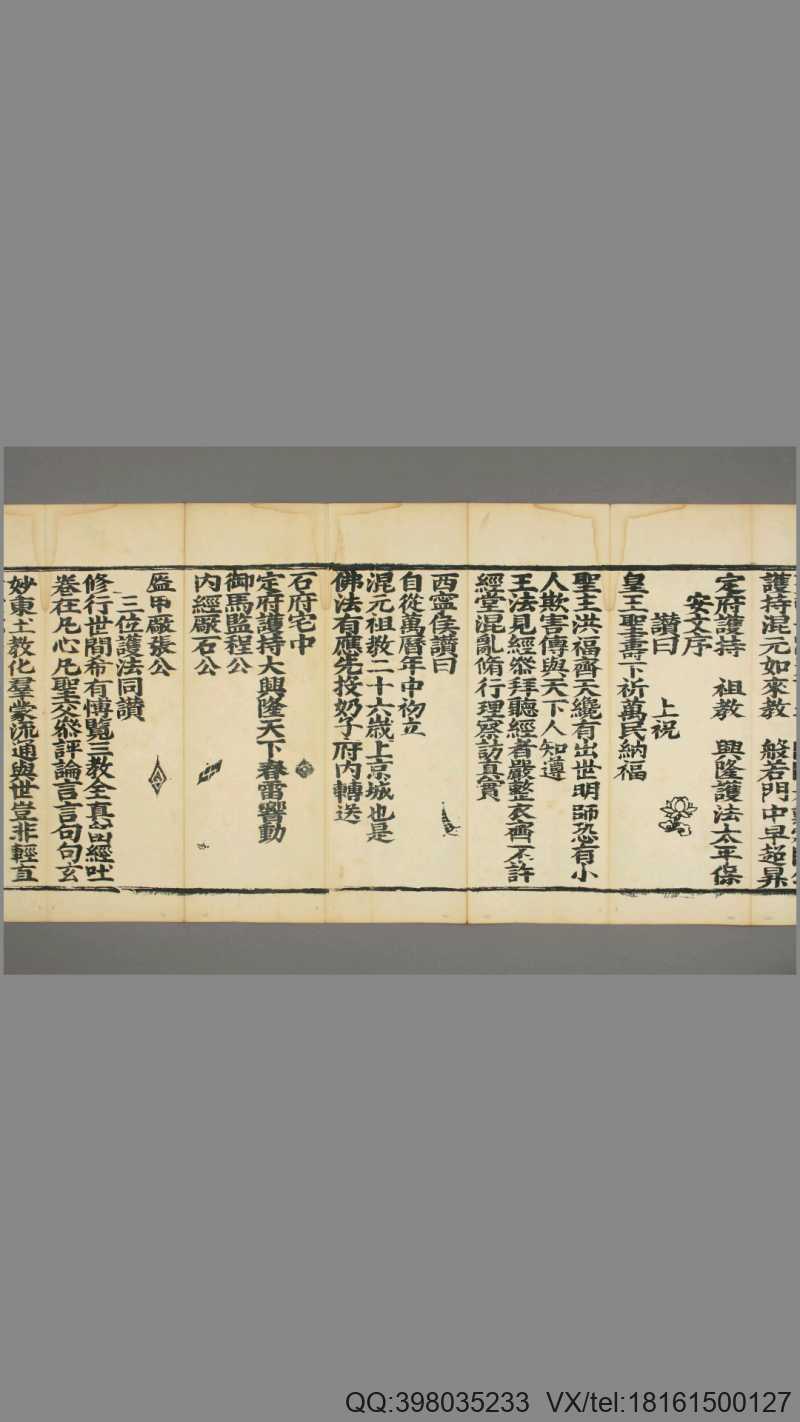 護持混元如來教　般若門中早超昇
定府護持　祖教　興隆護法太平保
安文序
讃曰　上祝
皇王聖壽下祈萬民納福
聖主洪福齊天纔有出世明師恐有小
人欺害傳與天下人知遵
王法見經叅拜聽經者嚴整衣齊不許
經堂混亂脩行理察訪真實
西寧侯讃曰
自從萬曆年中初立
混元祖教二十六歲上京城也是
佛法有應先投奶子府內轉送
石府宅中
定府護持大興隆天下春雷響動
御馬監程公
內經廠石公
盔甲廠張公
三位護法同讃
修行世間希有博覽三教全真留經吐
卷在凡心凡聖交叅評論言言句句玄
妙東土教化羣蒙流通與世豈非輕直
QQ:398035233 VX/tel:18161500127